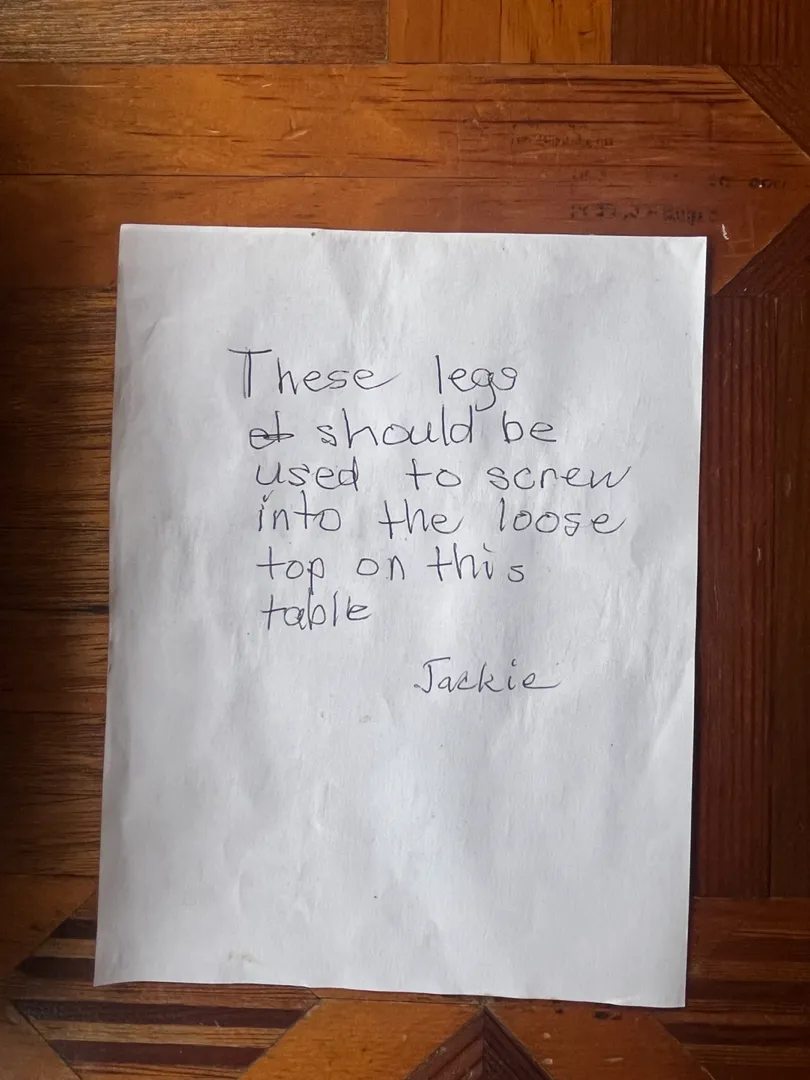 These legs
should be
used to screw
into the loose
top on this
table
Jackie